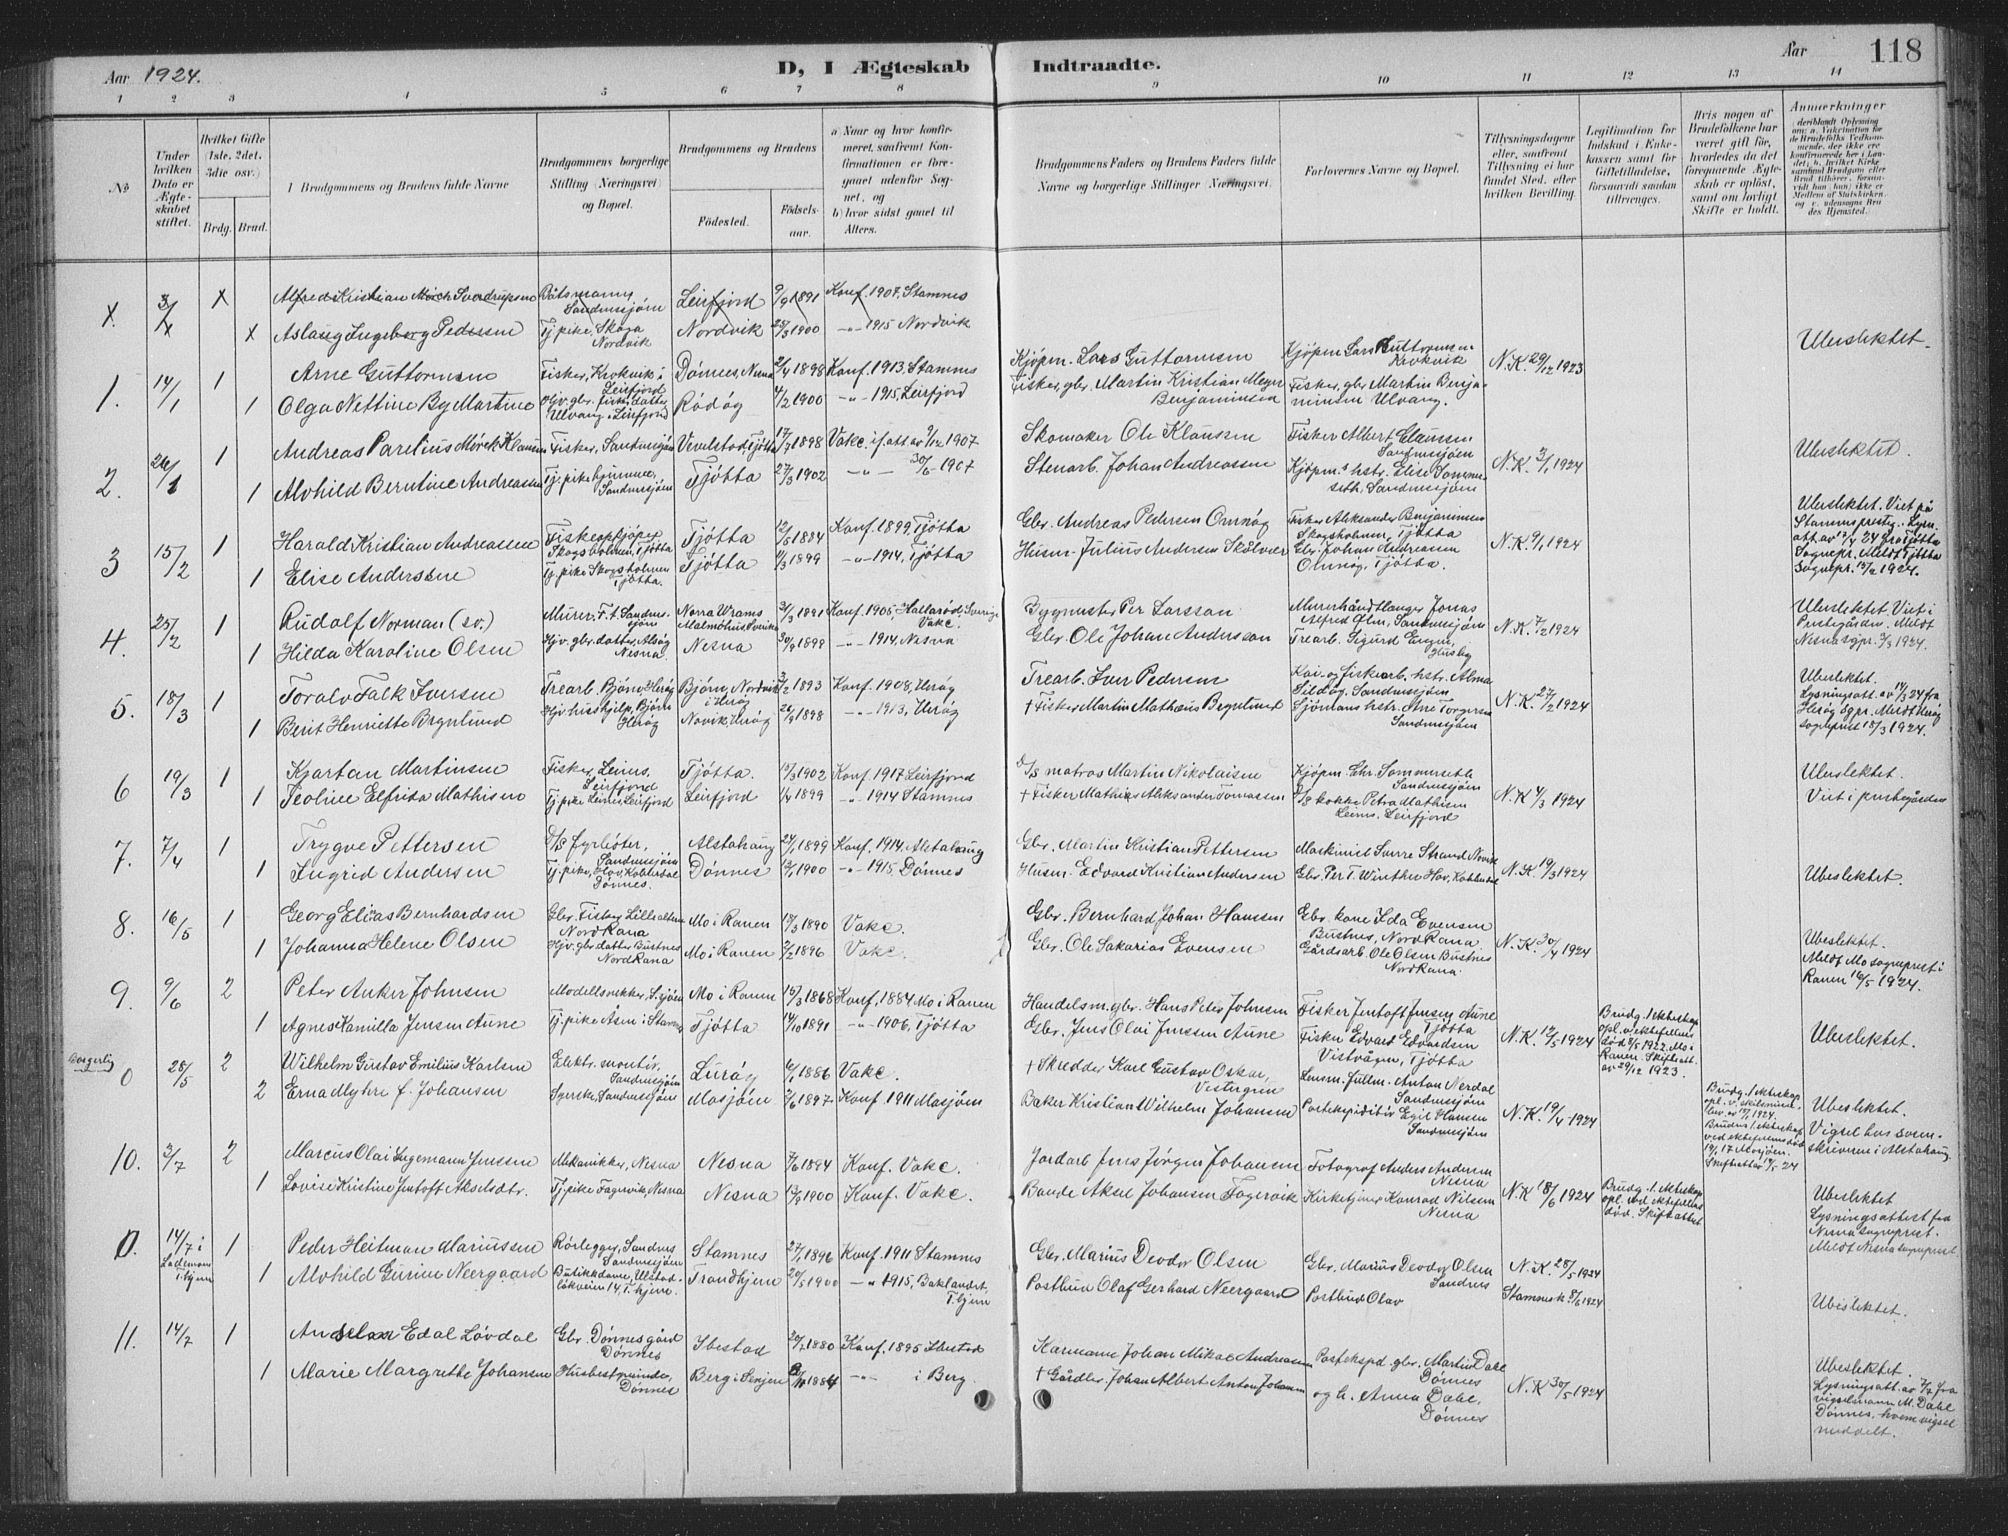 Aar 1924.
D, I Ægteskab Indtraadte.
Aar 118
1 2 3 4 5 6 7 8 9 10 11 12 13 14
No
Under hvilken Dato er Ægteskabet stiftet.
Hvilket Gifte (1ste, 2det, 3die osv.)
Brdg. Brud.
Brudgommens og Brudens fulde Navne
Brudgommens borgerlige Stilling (Næringsvei) og Bopæl.
Brudgommens og Brudens
Fødested.
Fødselsaar.
a) Naar og hvor konfirmeret, saafremt Konfirmationen er foregaaet udenfor Sognet, og
b) hvor sidst gaaet til Alters.
Brudgommens Faders og Brudens Faders fulde Navne og borgerlige Stillinger (Næringsvei).
Forlovernes Navne og Bopæl.
Tillysningsdagene eller, saafremt Tillysning ei har fundet Sted, efter hvilken Bevilling.
Legitimation for Indskud i Enkekassen samt for Giftetilladelse, forsaavidt saadan tiltrænges.
Hvis nogen af Brudefolkene har været gift før, hvorledes da det foregaaende Ægteskab er opløst, samt om lovligt Skifte er holdt.
Anmærkninger
X. 3/X X Alfred Kristian Mørch Sverdrupsen Båtsmann, Sandnessjøen Leirfjord 9/9 1891 Konf. 1907, Stamnes
X Aslaug Ingeborg Pedersen Tj.pike, Skaga Nordvik Nordvik 25/3 1900 -"- 1915 Nordvik
1. 14/1 1 Arne Guttormsen Fisker, Krokvik i Leirfjord Dønnes, Nesna 2/4 1898 Konf. 1913, Stamnes Kjøpm. Lars Guttormsen Kjøpm Lars Guttormsen Krokvik N.K. 29/12 1923 Ubeslektet.
1 Olga Nettine By Martine Hjv. gbr. fisk. datter Ulvang i Leirfjord Rødøy 4/2 1900 -"- 1915, Leirfjord Fisker, gbr. Martin Kristian Meyer Benjaminsen Fisker, gbr Martin Benjaminsen Ulvang.
2. 26/1 1 Andreas Parelius Mørck Klausen Fisker, Sandnessjøen Vevelstad, Tjøtta 17/7 1898 Vakc. if. att av 9/12 1907 Skomaker Ole Klausen Fisker Albert Clausen Sandnessjøen N.K. 3/1 1924 Ubeslektet.
1 Alvhild Berntine Andreassen Tj. pike hjemme, Sandnessjøen Tjøtta 27/3 1902 -"- 30/6 1907 Stenarb. Johan Andreassen Kjøpm.s hstr. Elise Sommerseth, Sandnessjøen
3 15/2 1 Harald Kristian Andreassen Fiskeopkjøper Skogsholmen, Tjøtta Tjøtta 12/5 1884 Konf. 1899, Tjøtta Gbr. Andreas Pedersen Omnøy Fisker Aleksander Benjaminsen Skogsholmen, Tjøtta N.K. 9/1 1924 Ubeslektet. Viet på Stamnes presteg. Lysn. att. av 17/1 24 fra Tjøtta Sognepr. Meldt Tjøtta Sognepr. 15/2 1924.
1 Elise Andersen Tj. pike Skogsholmen Tjøtta. Tjøtta 11/3 1899 -"- 1914, Tjøtta Husm. Julius Andersen Skålvær Gbr. Johan Andreassen Omnøy, Tjøtta.
4. 25/2 1 Rudolf Norman (sv.) Murer, F.t. Sandnessjøen Norra Wrams Malmöhus Sverike 31/3 1891 Konf. 1905, Hallarød Sverige Vakc. Bygmester Per Larsson Murerhåndtlanger Jonas Alfred Olsn, Sandnessjøen N.K. 7/2 1924 Ubeslektet. Viet i Prestegården. Meldt Nesna sgpr. 3/3 1924.
1 Hilda Karoline Olsen Hjv. gbr. datter, Alsøy Nesna. Nesna 30/9 1899 -"- 1914, Nesna Gbr. Ole Johan Andersson Trearb. Sigurd Engen, Husby
5. 18/3 1 Toralv Falk Iversen Trearb. Bjørn, Herøy Bjørn, Nordvik i Herøy 3/2 1893 Konf. 1908, Herøy Trearb. Iver Pedersen Kai- og fiskarb. hstr. Alma Sildøy, Sandnessjøen N.K. 27/2 1924 Ubeslektet. Lysningsatt. av 14/3 24 fra Herøy Sgpr. Meldt Herøy sogneprest 18/3 1924.
1 Berit Henriette Brynlund Hjv. hushjelp, Bjørn Herøy Novik, Herøy 26/9 1898 -"- 1913, Herøy † Fisker Martin Mathæus Brynlund Sjømans hstr. Ane Torgersen Sandnessjøen
6 19/3 1 Kjartan Martinsen Fisker, Leines, Leirfjord Tjøtta. 15/3 1902 Konf. 1917 Leirfjord D/S matros Martin Nikolaisen Kjøpm. Chr. Sommerseth Sandnessjøen N.K. 4/3 1924 Ubeslektet. Viet i prestegården
1 Teoline Elfrida Mathisen Tj. pike Leines, Leirfjord Leirfjord 1/4 1899 -"- 1914 Stamnes † Fisker Mathias Aleksander Tomassen D/S kokke Petra Mathisen Leines, Leirfjord
7. 7/4 1 Trygve Pettersen D/S fyrbøter, Sandnessjøen Alstahaug 24/1 1899 Konf. 1914. Alstahaug Gbr. Martin Kristian Pettersen Maskinist Sverre Strand Novik N.K. 19/3 1924 Ubeslektet.
1 Ingrid Andersen Tj. pike, Hov, Kobberdal Dønnes. Dønnes 12/1 1900 -"- 1915, Dønnes Husm. Edvard Kristian Andersen Gbr. Per T. Winther Hov, Kobberdal
8. 16/5 1 Georg Elias Bernhardsen Gbr. Fisker Lillealteren Nord Rana Mo i Ranen 17/3 1890 Vakc. Gbr. Bernhard Johan Hanssen Gbr. kone Ida Evensen Bustnes, Nord Rana N.K. 30/4 1924 Ubeslektet. Meldt Mo sogneprest i Ranen 16/5 1924.
1 Johanna Helene Olsen Hjv. gbr. datter Bustnes Nord Rana Mo i Ranen 2/2 1896 Vakc. Gbr. Ole Sakarias Evensen Gårdsarb. Ole Olsen Bustnes Nord Rana.
9. 9/6 2 Peter Anker Johnsen Modellsnekker, S.sjøen Mo i Ranen 15/3 1868 Konf. 1884 Mo i Ranen Handelsm. gbr. Hans Peter Johnsen Fisker Jentoft Jensen Aune Tjøtta N.K. 12/5 1924 Brudg. 1 ekteskap opl. v. ektefellens død 8/5 1922. Mo i Ranen. Skifteatt. av 29/12 1923. Ubeslektet.
1 Agnes Kamilla Jensen Aune Tj. pike Asen i Stamnes Tjøtta 14/10 1891 -"- 1906, Tjøtta Gbr. Jens Olai Jenssen Aune Fisker Edvard Edvardsen Vistvågen, Tjøtta
Borgerlig 0 28/5 2 Wilhelm Gustav Emilius Karlsen Elektr. montør, Sandnessjøen Lurøy 6/1 1886 Vakc. † Skredder Karl Gustav Oskar Vestergren Lensm. fullm. Anton Nerdal Sandnessjøen N.K. 19/4 1924 Brudg. 1 ekteskap opl. v. skilsmisse, bev. av 15/1 1924. Brudens 1. ekteskap ved ektefellens død 19/1 17 Mosjøen. Skifteatt av 14/5 24 Ubeslektet. Vigsel hos sorenskriveren i Alstahaug
2 Erna Myhre f. Johansen Syerske, Sandnessjøen Mosjøen 2/6 1897 Konf. 1911 Mosjøen Baker Kristian Wilhelm Johansen Postekspeditør Egil Hansen Sandnessjøen
10. 3/7 2 Marcus Olai Ingemann Jenssen Mekanikker, Nesna Nesna 7/6 1894 Konf. Vakc. Jordarb Jens Jørgen Johansen Fotograf Anders Andersen Nesna N.K 18/6 1924 Brudg. 1. ekteskap opl. ved ektefellens død. Skifteattest Ubeslektet Lysningsattest fra Nesna sogneprest. Meldt Nesna sogneprest.
1 Lovise Kristine Jentoft Akselsdtr. Tj. pike Fagervik, Nesna Nesna 12/9 1900 Konf. Vakc. Bonde Aksel Johansen Fagervik Kirketjener Konrad Nilsen Nesna
0. 14/7 i Lademoen T.hjem 1 Peder Heitman Mariussen Rørlegger, Sandnes Sandnessjøen Stamnes 27/1 1896 Konf. 1911 Stamnes Gbr. Marius Deodor Olsen Gbr. Marius Deodor Olsen Sandnes N.K. 28/5 1924 Stamnes k 8/6 1924 Ubeslektet.
1 Alvhild Gurine Neergaard Butikkdame, Ulstadløkveien 14, T.hjem. Trondhjem 20/5 1900 -"- 1915, Baklandet, T.hjem Postbud Olaf Gerhard Neergaard Postbud Olav
11. 14/7 1 Anselm Edal Løvdal Gbr. Dønnes gård Dønnes Ibestad 20/2 1880 Konf. 1895 Ibestad Kårmann Johan Mikal Andreassen Postekspd. gbr. Martin Dahl Dønnes N.K 30/5 1924 Ubeslektet. Lysningsatt. av 7/7 fra vigselmann M. Dahl Dønnes, hvem vigsel meddelt.
1 Marie Margrethe Johansen Husbestyrerinde, Dønnes Berg i Senjen 1884 -"- i Berg. † Gårdbr. Johan Albert Anton Johansen og h. Anna Dahl, Dønnes